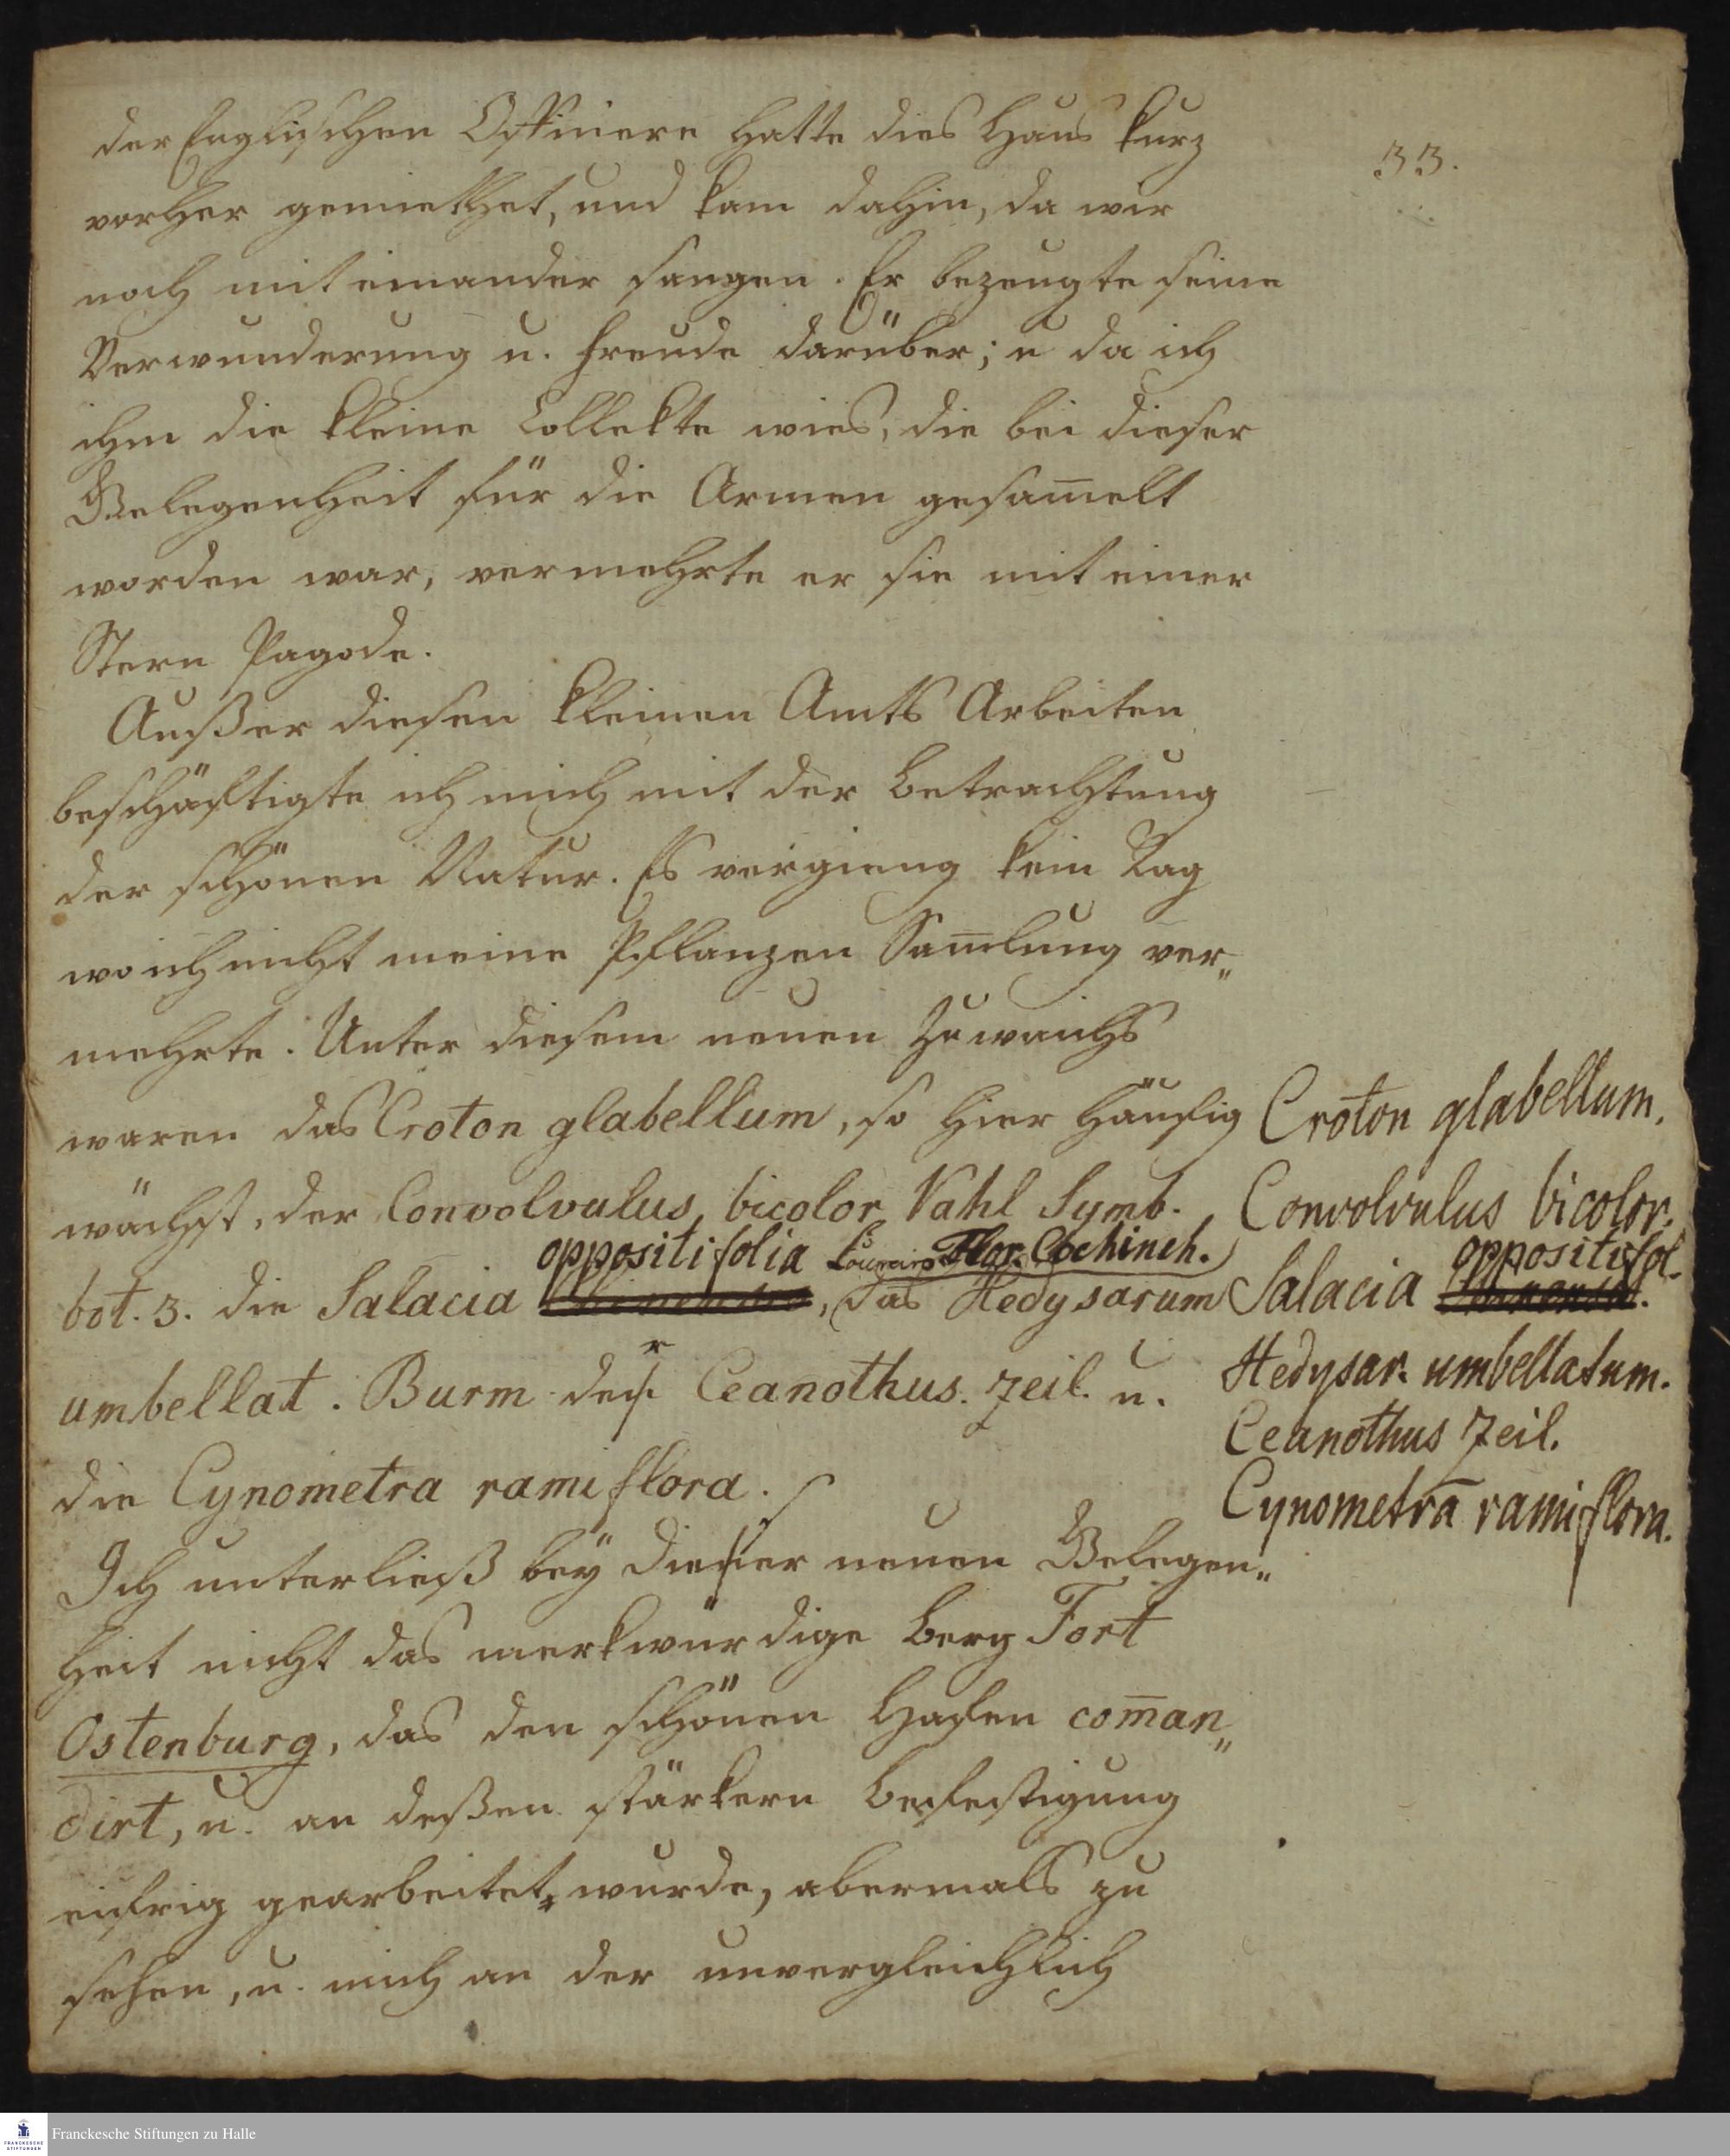 33.
der Englischen Officiere hatte dies Haus kurz
vorher gemiethet, und kam dahin, da wir
noch mit einander sangen. Er bezeugte seine
Verwunderung u. Freude darüber; u da ich
ihm die kleine Collekte wies, die bei dieser
Gelegenheit für die Armen gesam̄elt
worden war, vermehrte er sie mit einer
Stern Pagode.
Außer diesen kleinen Amts Arbeiten
beschäftigte ich mich mit der Betrachtung
der schönen Natur. Es vergieng kein Tag
wo ich nicht meine Pflanzen Sam̄lung ver„
mehrte. Unter diesem neuen Zuwachs
waren das Croton glabellum, so hier häufig
wächst, der Convolvulus bicolor Vahl Symb.
oppositifolia Loureiro Flor. Cochinch.
bot. 3. die Salacia , das Hedysarum
umbellat. Burm der Ceanothus. Zeil. u.
die Cynometra ramiflora.
Ich unterließ bey dieser neuen Gelegen„
heit nicht das merkwürdige Berg Fort
Ostenburg, das den schönen Hafen com̄an„
dirt, u. an deßen stärkern Befestigung
eifrig gearbeitet wurde, abermals zu
sehen, u. mich an der unvergleichlich
Croton glabellum.
Convolvulus bicolor.
oppositifol.
Salacia
Hedysar. umbellatum.
Ceanothus Zeil.
Cynometra ramiflora.
Franckesche Stiftungen zu Halle
FRANCKESCHE
STIFTUNGEN